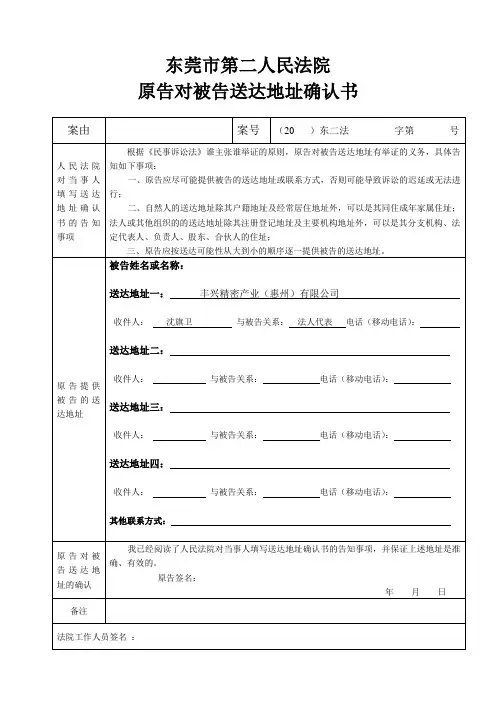 东莞市第二人民法院
原告对被告送达地址确认书
案由 案号 （20 ）东二法 字第 号
人民法院
对当事人
填写送达
地址确认
书的告知
事项
根据《民事诉讼法》谁主张谁举证的原则，原告对被告送达地址有举证的义务，具体告
知如下事项：
一、原告应尽可能提供被告的送达地址或联系方式，否则可能导致诉讼的迟延或无法进
行；
二、自然人的送达地址除其户籍地址及经常居住地址外，可以是其同住成年家属住址；
法人或其他组织的的送达地址除其注册登记地址及主要机构地址外，可以是其分支机构、法
定代表人、负责人、股东、合伙人的住址；
三、原告应按送达可能性从大到小的顺序逐一提供被告的送达地址。
原告提供
被告的送
达地址
被告姓名或名称：
送达地址一： 丰兴精密产业（惠州）有限公司
收件人： 沈旗卫 与被告关系： 法人代表 电话（移动电话）：
送达地址二：
收件人： 与被告关系： 电话（移动电话）：
送达地址三：
收件人： 与被告关系： 电话（移动电话）：
送达地址四：
收件人： 与被告关系： 电话（移动电话）：
其他联系方式：
原告对被
告送达地
址的确认
我已经阅读了人民法院对当事人填写送达地址确认书的告知事项，并保证上述地址是准
确、有效的。
原告签名：
年 月 日
备注
法院工作人员签名 ：